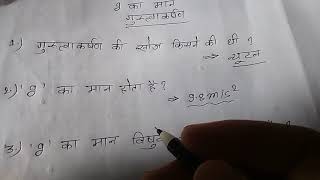 g का मान
गुरुत्वाकर्षण
1) गुरुत्वाकर्षण की खोज किसने की थी ?
⇒ न्यूटन
2.) 'g' का मान होता है ?
⇒ 9.8 m/s²
3.) 'g' का मान विषु